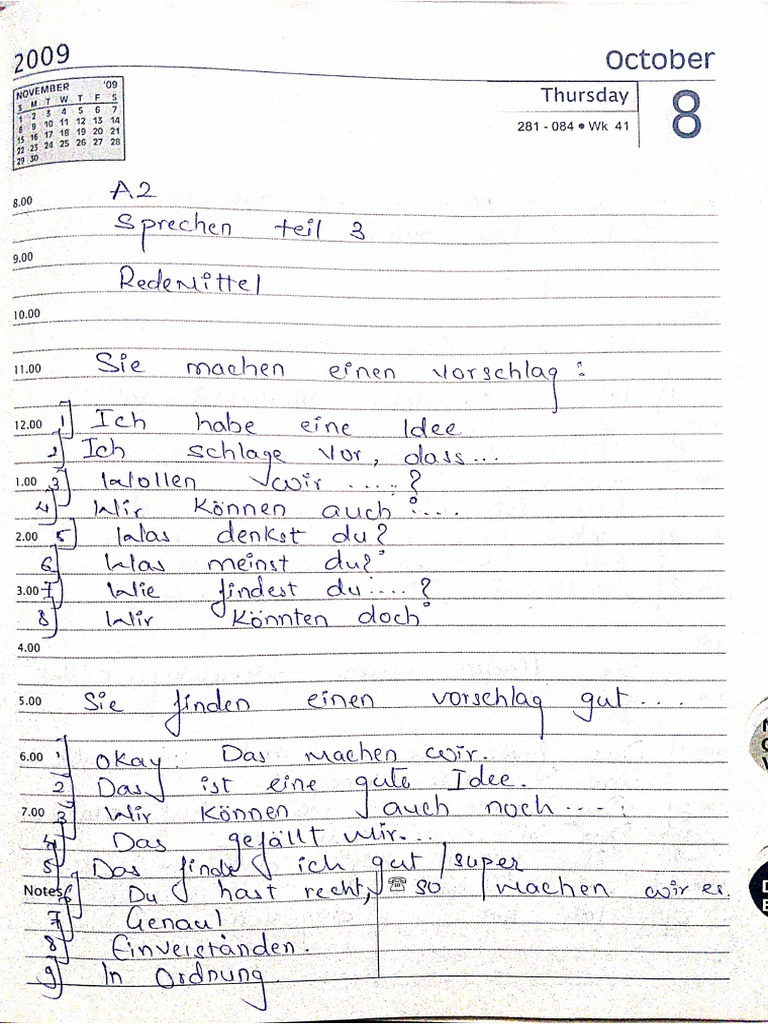 2009
October
NOVEMBER '09
S M T W T F S
1 2 3 4 5 6 7
8 9 10 11 12 13 14
15 16 17 18 19 20 21
22 23 24 25 26 27 28
29 30
Thursday
8
281 - 084 • Wk 41
8.00 A2
Sprechen teil 3
9.00
RedeMittel
10.00
11.00 Sie machen einen vorschlag :
12.00 1] Ich habe eine Idee
2] Ich schlage vor, dass...
1.00 3] Wollen wir .....?
4] Wir können auch :....
2.00 5] Was denkst du?
6] Was meinst du?
3.00 7] Wie findest du.....?
8] Wir könnten doch
4.00
5.00 Sie finden einen vorschlag gut ...
6.00 1] Okay: Das machen wir.
2] Das ist eine gute Idee.
7.00 3] Wir können auch noch ....
4] Das gefällt mir...
5] Das finde ich gut / super
Notes 6] Du hast recht, ☏ so machen wir es.
7] Genau!
8] Einverständen.
9] In Ordnung